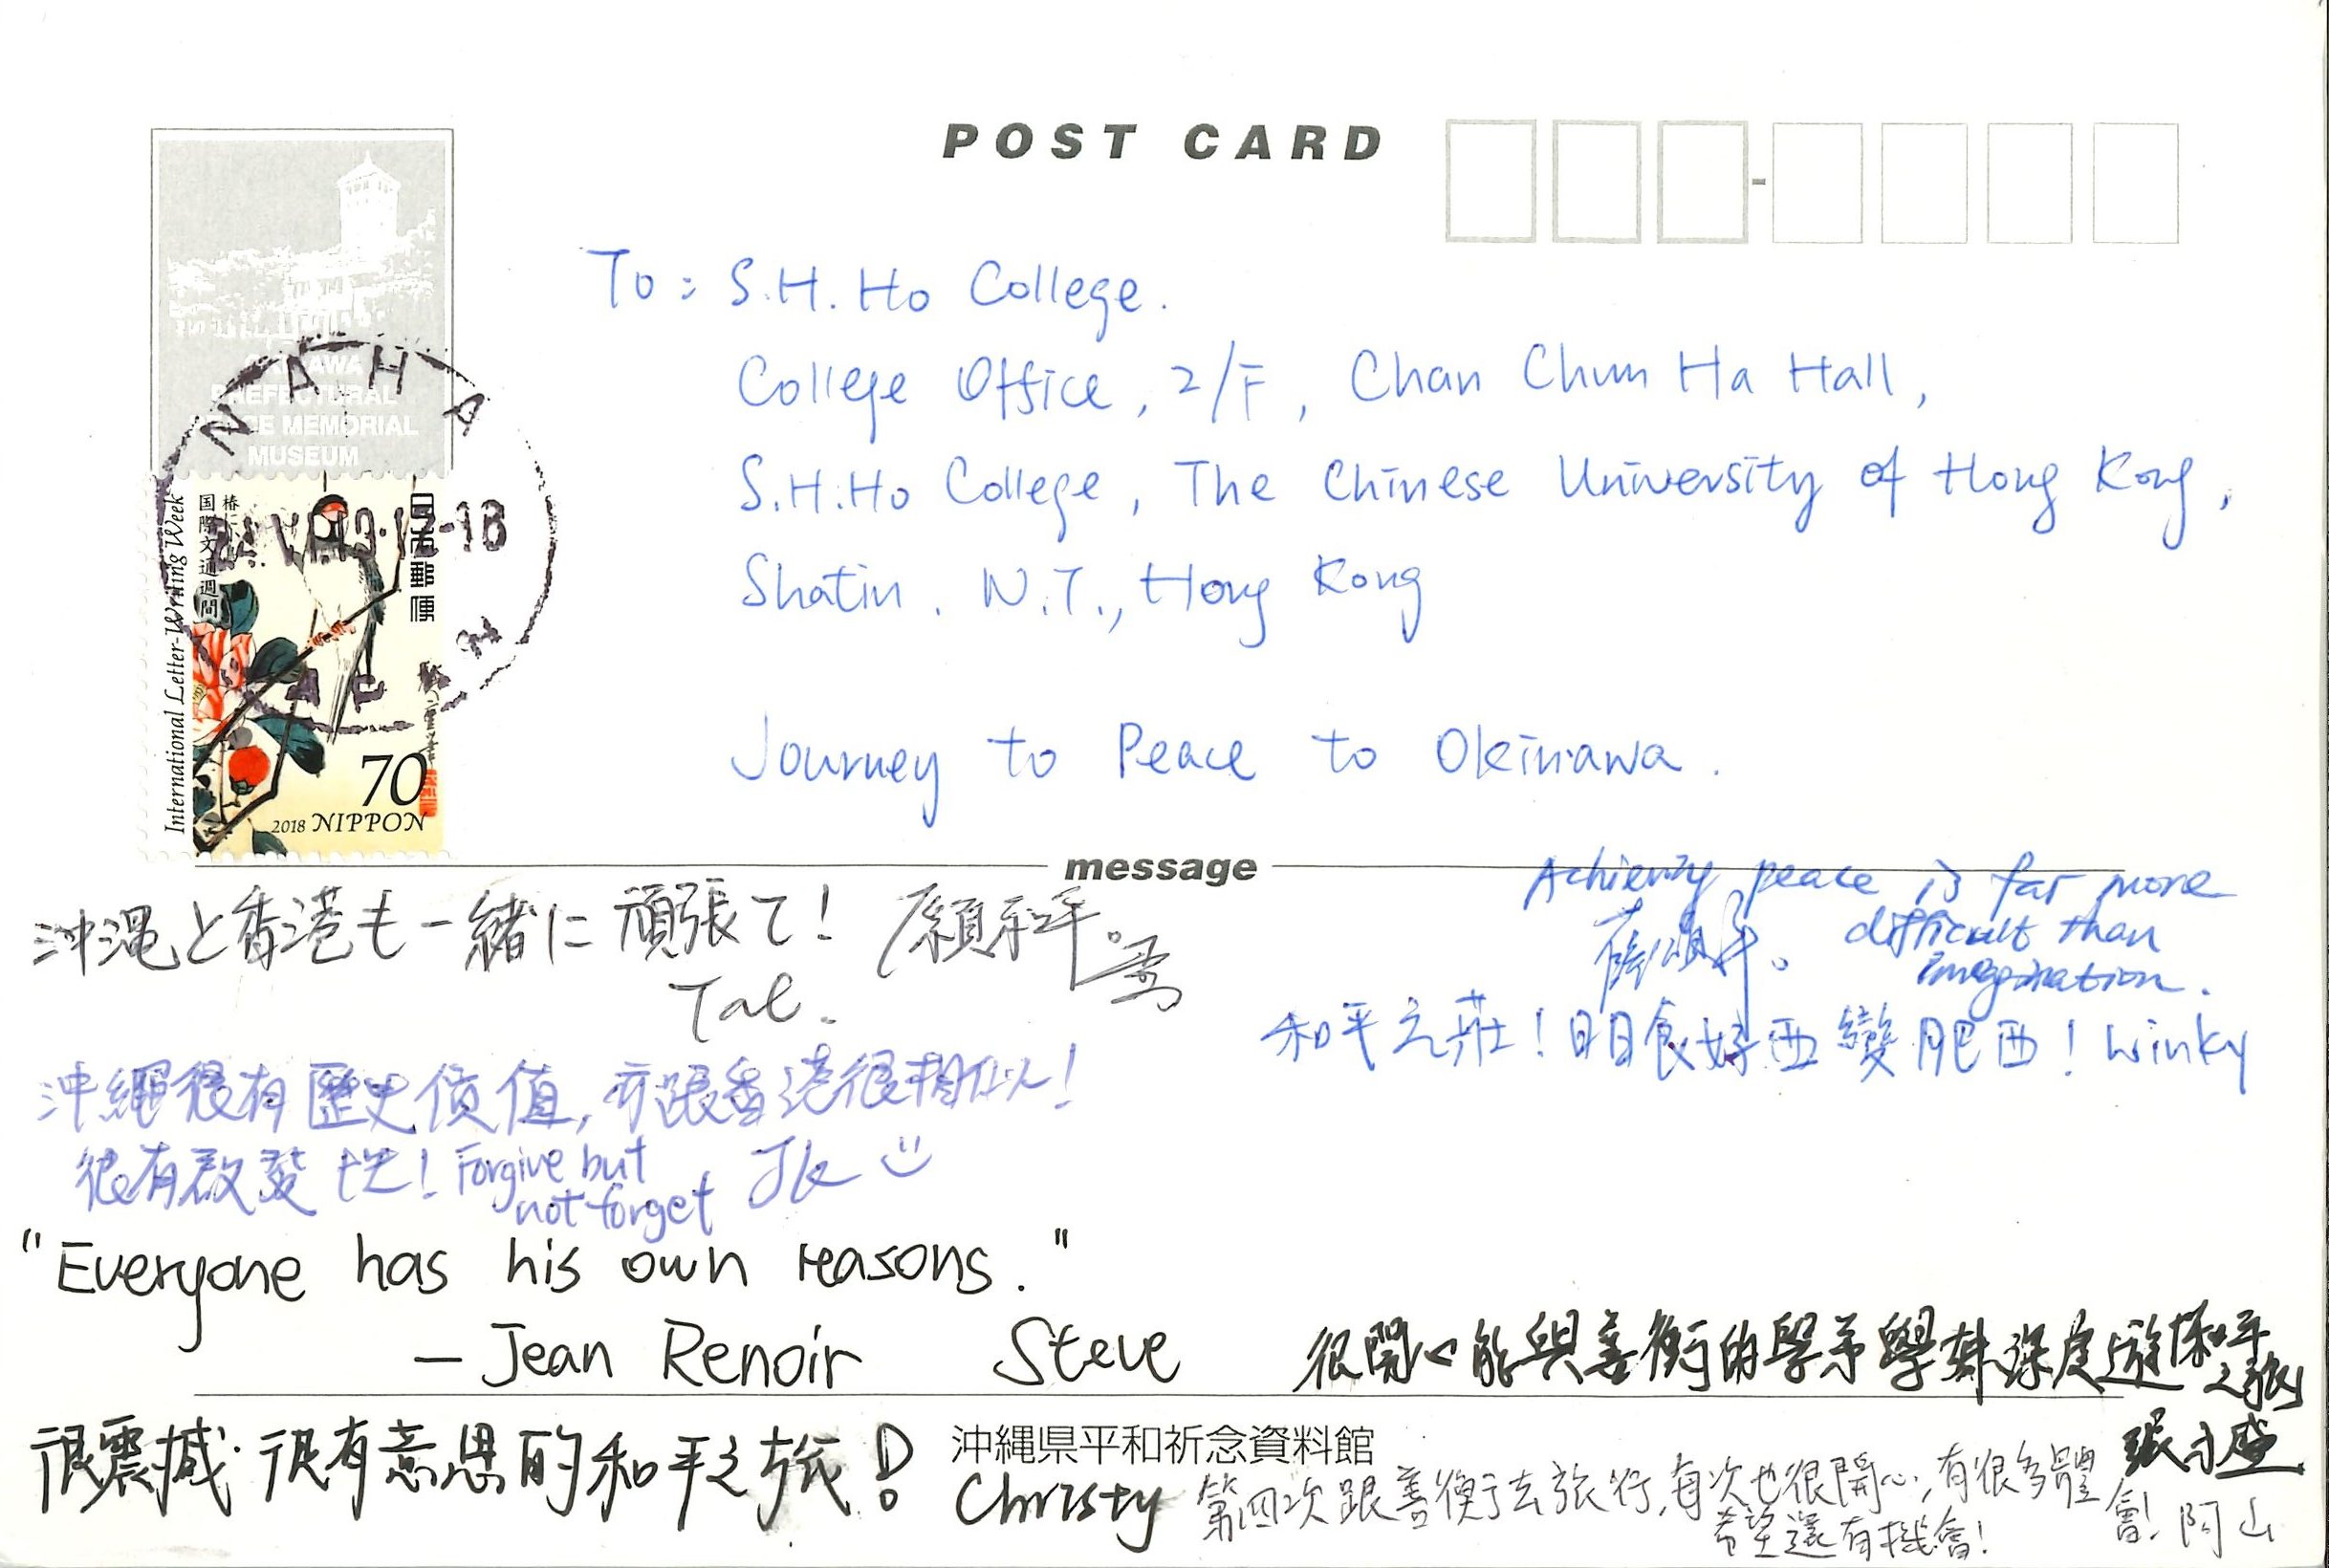 POST CARD
OKINAWA
PREFECTURAL
PEACE MEMORIAL
MUSEUM
NAHA
JAPAN
International Letter-Writing Week
国際文通週間
日本郵便
70
2018 NIPPON
To: S.H. Ho College.
College Office, 2/F, Chan Chun Ha Hall,
S.H.Ho College, The Chinese University of Hong Kong,
Shatin. N.T., Hong Kong
Journey to Peace to Okinawa.
message
沖縄と香港も一緒に頑張て! 願和平。
Tat.
Achieving peace is far more
difficult than
imagination.
和平之莊!日日食好西變肥西! Winky
沖繩很有歷史价值,亦跟香港很相似!
很有啟發性! Forgive but
not forget, JK
"Everyone has his own reasons."
— Jean Renoir Steve
很開心能與善衡的學弟學妹深度遊
和平之旅
很震撼.很有意思的和平之旅!
沖縄県平和祈念資料館
Christy
第四次跟善衡去旅行,每次也很開心,有很多體會! 阿山
希望還有機會!